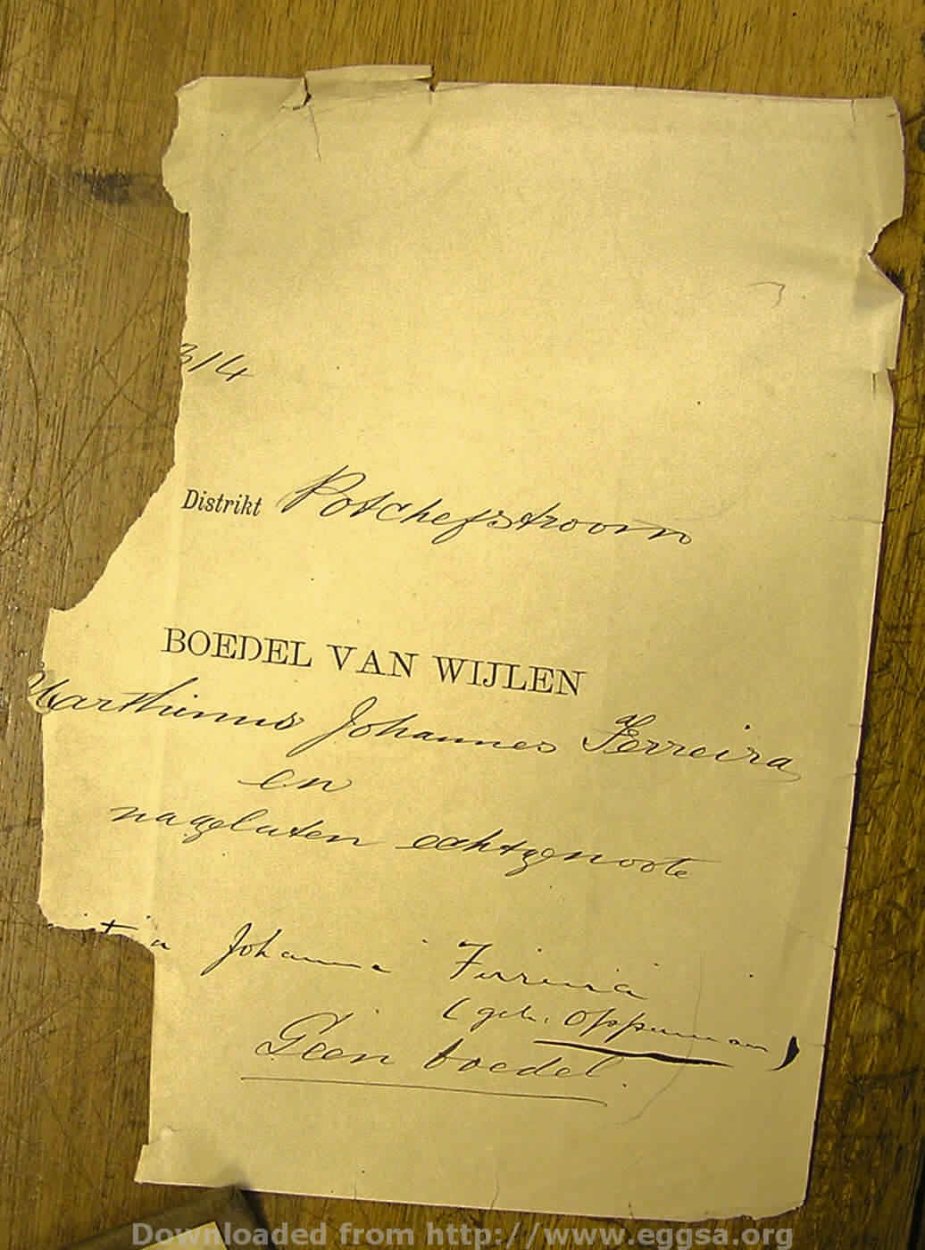 3/4
Distrikt Potchefstroom
BOEDEL VAN WIJLEN
Marthinus Johannes Ferreira
en
nagelaten echtgenoote
Johanna Ferreira
(geb. Opperman)
Geen boedel.
Downloaded from http://www.eggsa.org